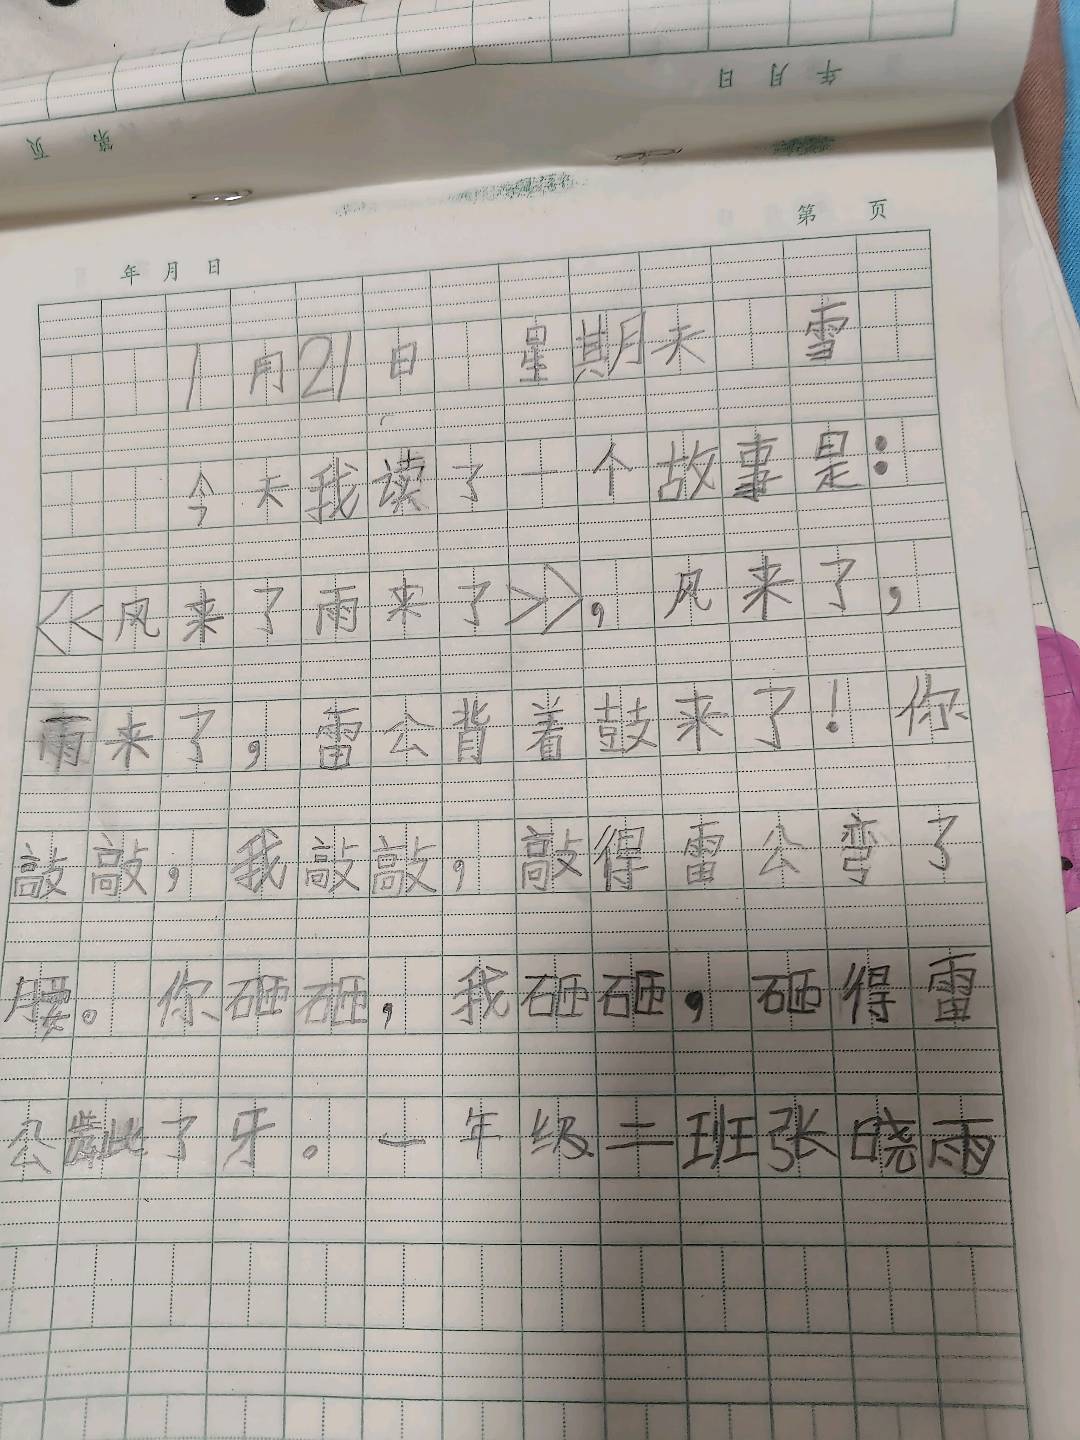 年 月 日
第 页
年 月 日
第 页
1月21日 星期天 雪
今天我读了一个故事是：
《风来了雨来了》，风来了，
雨来了，雷公背着鼓来了！你
敲敲，我敲敲，敲得雷公弯了
腰。你砸砸，我砸砸，砸得雷
公龇了牙。一年级二班张晓雨